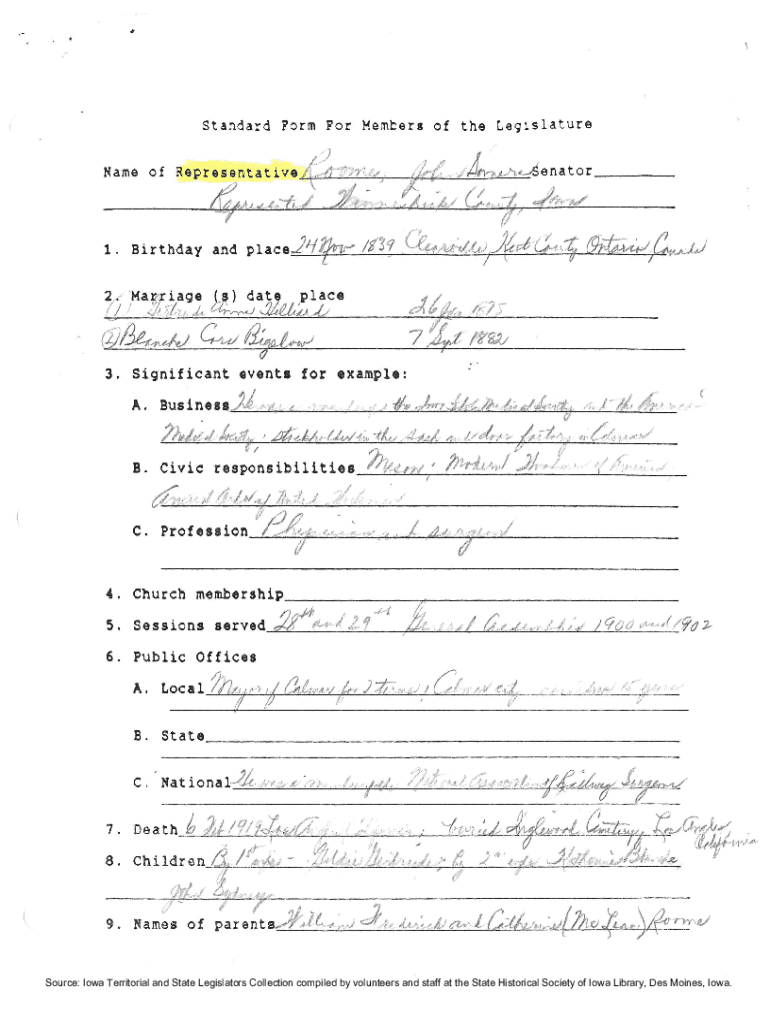 Standard Form For Members of the Legislature
Name of Representative Roome, John Somers Senator
Represented Winneshiek County, Iowa
1. Birthday and place 24 Nov 1839 Clearville, Kent County Ontario, Canada
2. Marriage (s) date place
(1) Gertrude Anne Hilliard 26 Jan 1875
(2) Blanche Cora Bigelow 7 Sept 1882
3. Significant events for example:
A. Business He was a member of the Iowa State Medical Society and the American
Medical Society; stockholder in the sash and door factory in Calmar
B. Civic responsibilities Mason; Modern Woodmen of America
Ancient Order of United Workmen
C. Profession Physician and surgeon
4. Church membership
5. Sessions served 28th and 29th General Assemblies 1900 and 1902
6. Public Offices
A. Local Mayor of Calmar for 2 terms; Calmar city 15 years
B. State
C. National He was a member of the National Association of Railway Surgeons
7. Death 6 Feb 1919 Los Angeles, California; buried Inglewood Cemetery, Los Angeles
California
8. Children By 1st wife - Goldie Gertrude; by 2nd wife Katherine Blanche
John Sydney
9. Names of parents William Frederick and Catherine (McLean) Roome
Source: Iowa Territorial and State Legislators Collection compiled by volunteers and staff at the State Historical Society of Iowa Library, Des Moines, Iowa.